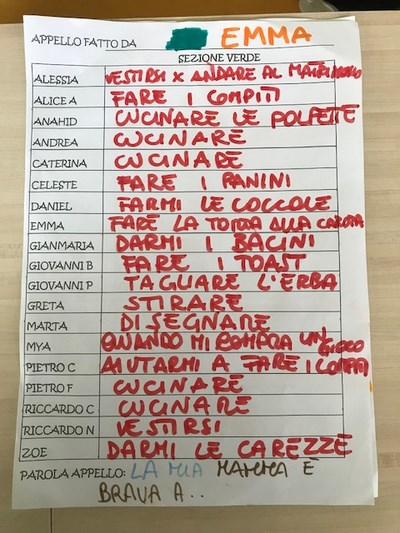 APPELLO FATTO DA EMMA
SEZIONE VERDE
ALESSIA VESTIRSI X ANDARE AL MATRIMONIO
ALICE A FARE I COMPITI
ANAHID CUCINARE LE POLPETTE
ANDREA CUCINARE
CATERINA CUCINARE
CELESTE FARE I PANINI
DANIEL FARMI LE COCCOLE
EMMA FARE LA TORTA ALLA CAROTA
GIANMARIA DARMI I BACINI
GIOVANNI B FARE I TOAST
GIOVANNI P TAGLIARE L'ERBA
GRETA STIRARE
MARTA DISEGNARE
MYA QUANDO MI COMPRA UN GIOCO
PIETRO C AIUTARMI A FARE I COMPITI
PIETRO F CUCINARE
RICCARDO C CUCINARE
RICCARDO N VESTIRSI
ZOE DARMI LE CAREZZE
PAROLA APPELLO: LA MIA MAMMA È
BRAVA A..